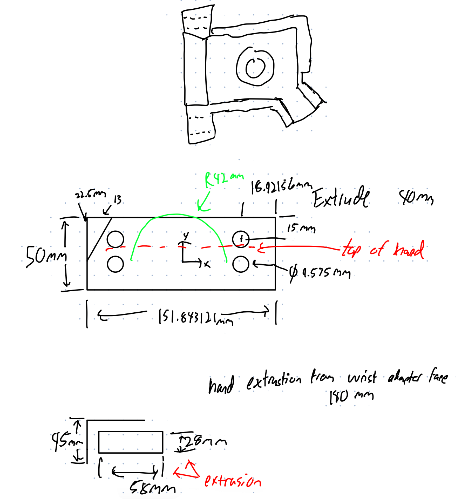 R42mm
22.5mm
13
18.92156mm
Extrude 40mm
15mm
50mm
y
x
top of hand
151.843121mm
hand extrustion from wrist adapter face
180 mm
45mm
28mm
58mm
extrusion